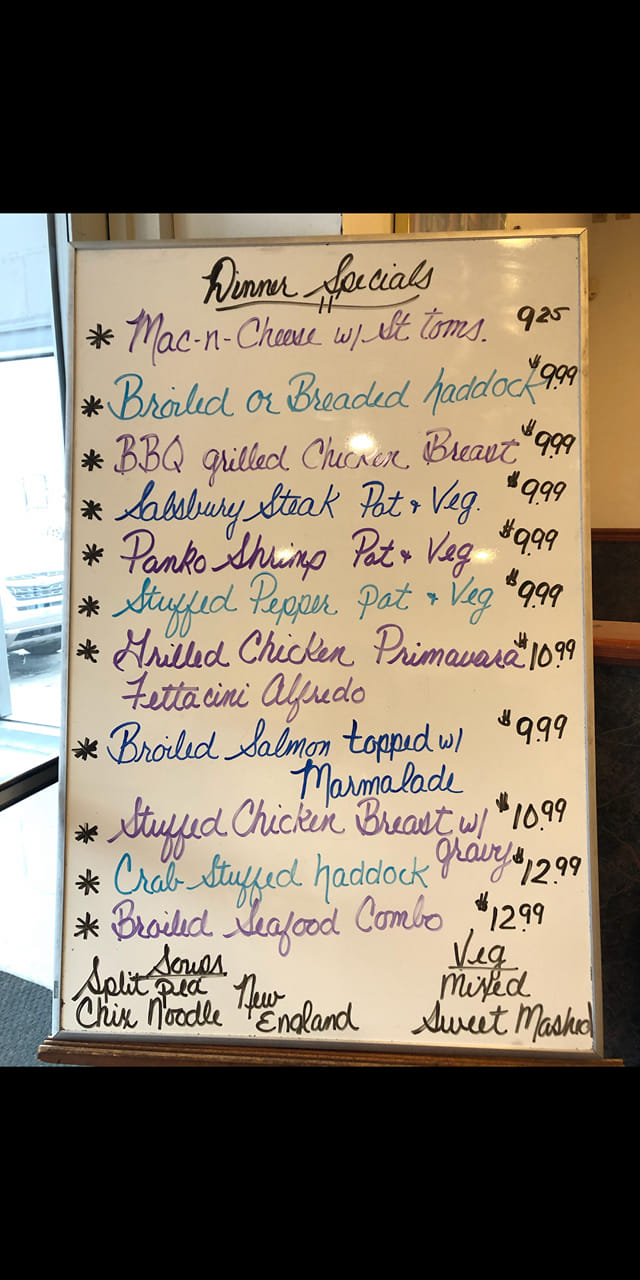 Dinner Specials
* Mac-n-Cheese w/ St toms. 9.25
* Broiled or Breaded haddock $9.99
* BBQ grilled Chicken Breast $9.99
* Salsbury Steak Pot + Veg. $9.99
* Panko Shrimp Pot + Veg $9.99
* Stuffed Pepper Pot + Veg $9.99
* Grilled Chicken Primavara $10.99
Fettacini Alfredo
* Broiled Salmon topped w/ $9.99
Marmalade
* Stuffed Chicken Breast w/ $10.99
gravy
* Crab Stuffed haddock $12.99
* Broiled Seafood Combo $12.99
Soups
Split pea
Chix Noodle
New
England
Veg
Mixed
Sweet Mashed